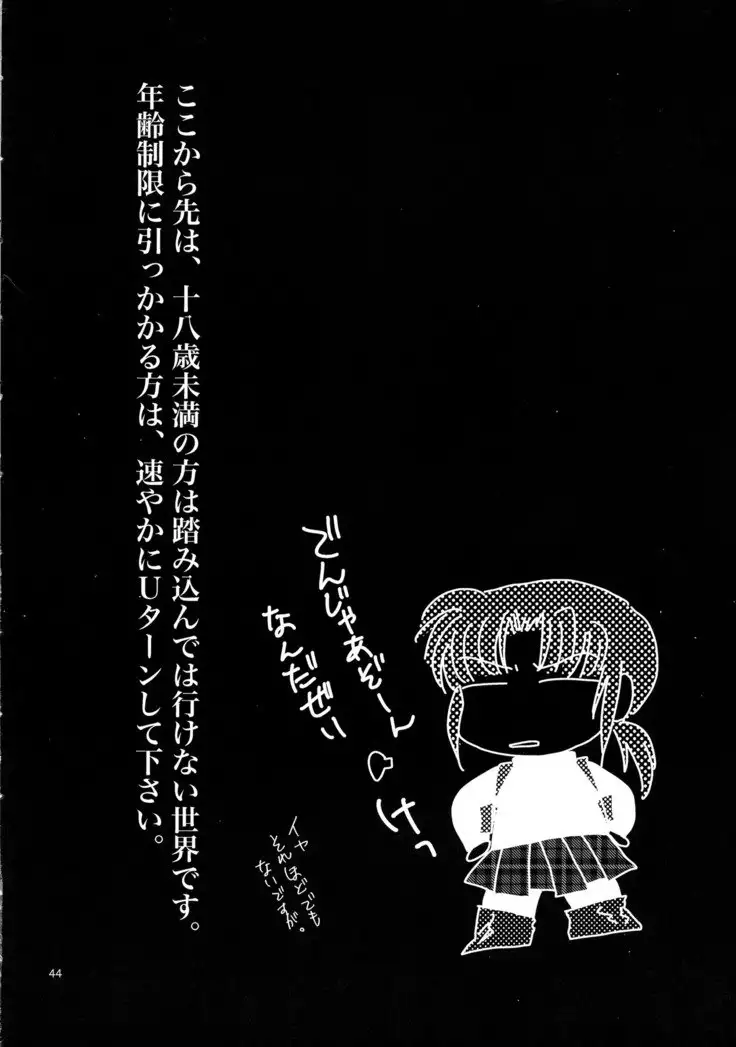 ここから先は、十八歳未満の方は踏み込んでは行けない世界です。
年齢制限に引っかかる方は、速やかにUターンして下さい。
でんじゃあぞーん
なんだぜい
けっ
イヤ
それほどでも
ないですが。
44